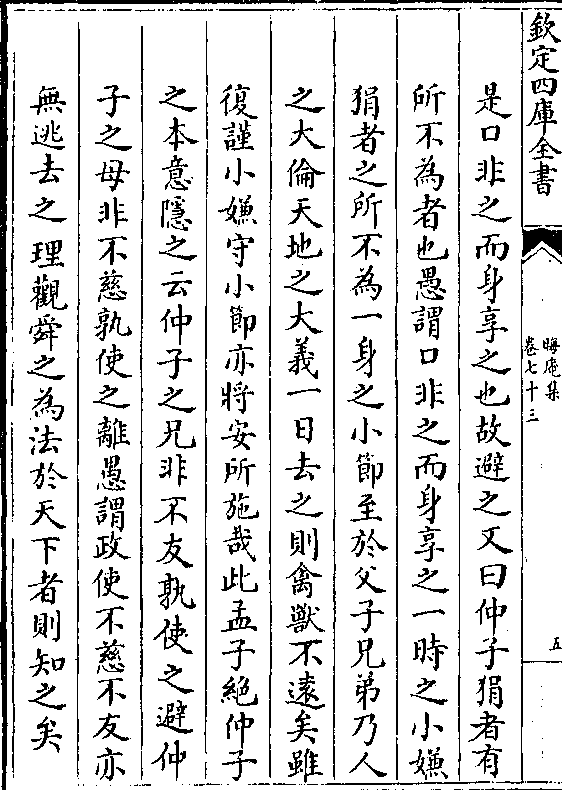 欽定四庫全書
晦庵集
卷七十三
五
是口非之而身享之也故避之又曰仲子狷者有
所不為者也愚謂口非之而身享之一時之小嫌
狷者之所不為一身之小節至於父子兄弟乃人
之大倫天地之大義一日去之則禽獸不遠矣雖
復謹小嫌守小節亦將安所施哉此孟子絕仲子
之本意隱之云仲子之兄非不友孰使之避仲
子之母非不慈孰使之離愚謂政使不慈不友亦
無逃去之理觀舜之為法於天下者則知之矣